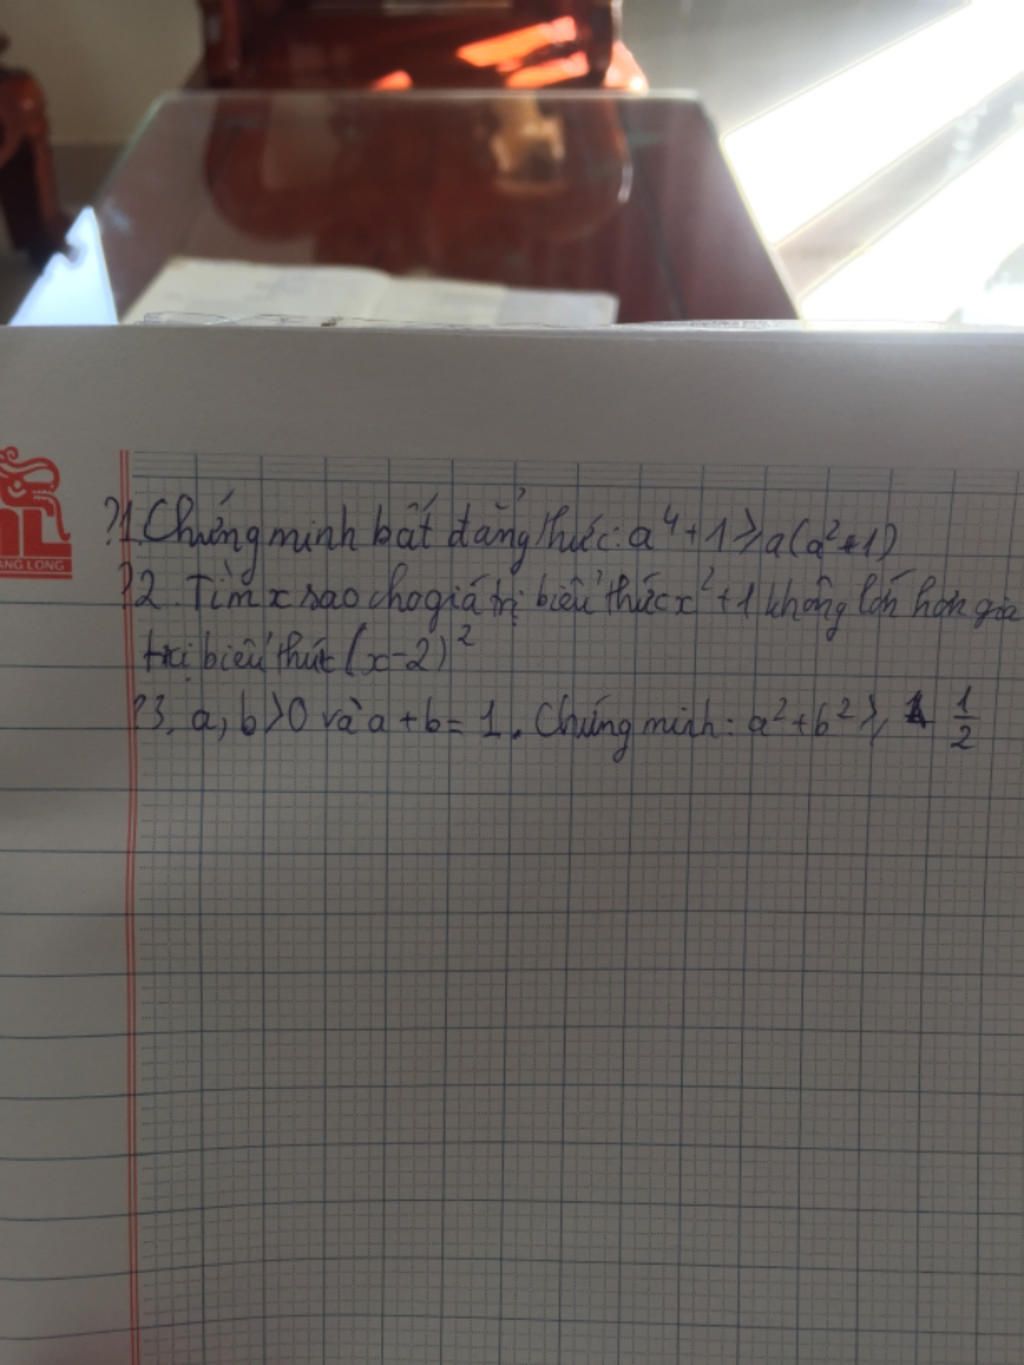 ?1. Chứng minh bất đẳng thức: a⁴ + 1 ≥ a(a² + 1)
?2. Tìm x sao cho giá trị biểu thức x² + 1 không lớn hơn giá
trị biểu thức (x - 2)²
?3. a, b > 0 và a + b = 1. Chứng minh: a² + b² ≥ 1/2
ANG LONG